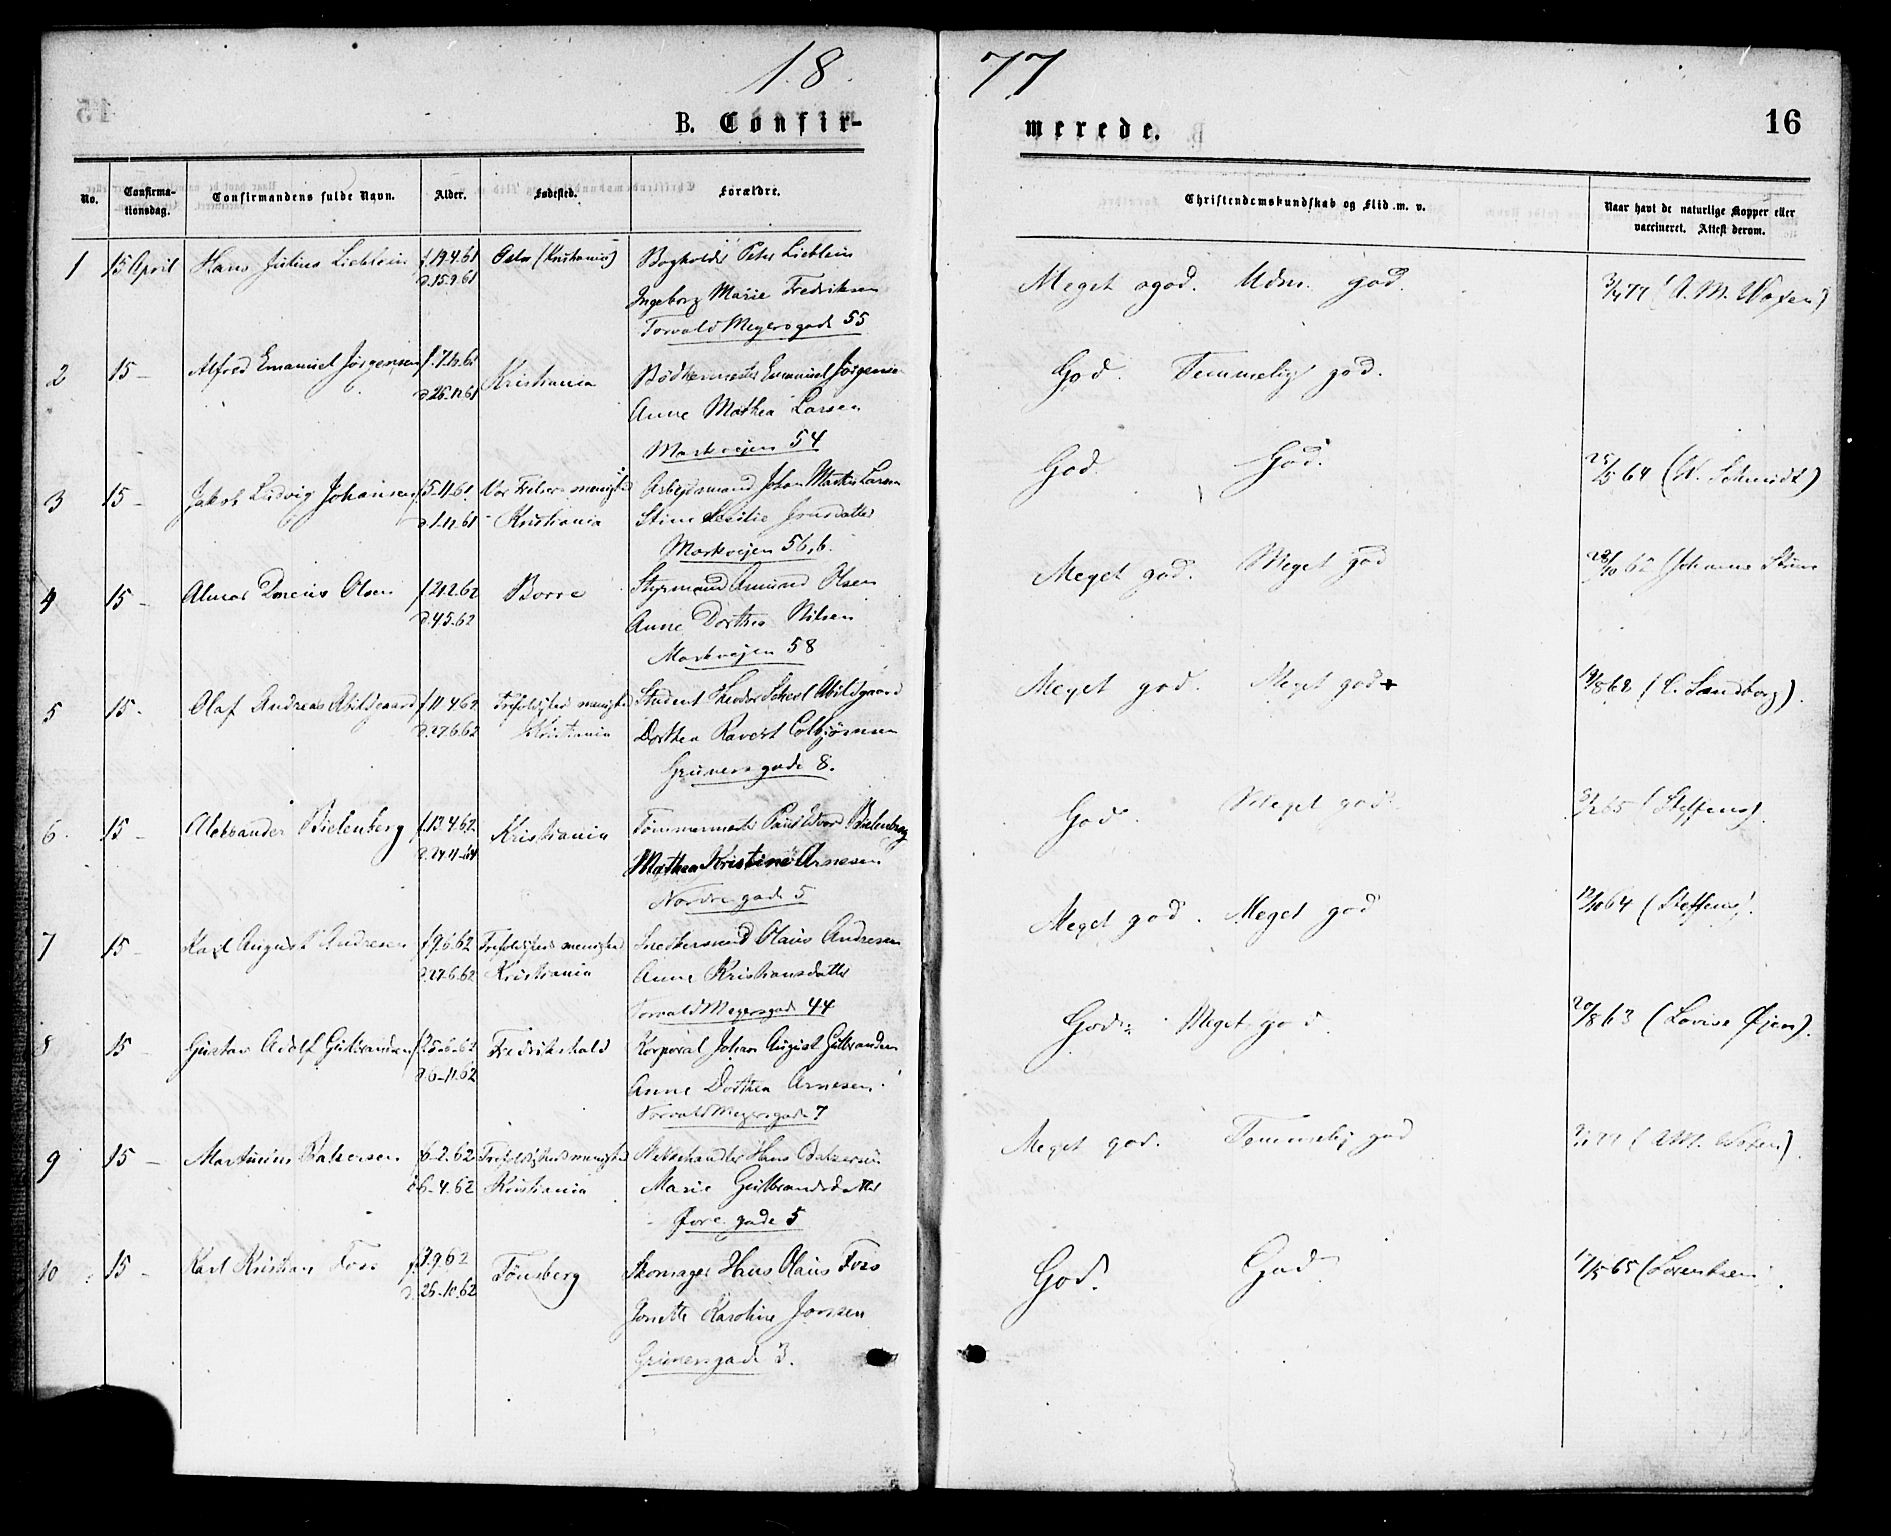 18 77
B. Confir- merede. 16
No. Confirma-tionsdag. Confirmandens fulde Navn. Alder. Fødested. Forældre. Christendomskundskab og Flid m. v. Naar havt de naturlige Kopper eller vaccineret. Attest derom.
1 15 April Hans Julius Lieblein f. 19.4.61 Oslo (Kristiania) Bogholder Peter Lieblein
d. 15.9.61 Ingeborg Marie Fredriksen Meget god. Udm. god. 3/4 77 (A. M. Woxen)
Torvald Meyersgade 55
2 15 - Alfred Emanuel Jørgensen Kristiania Bødkermester Emanuel Jørgensen God. Temmelig god.
d. 26.12.61 Anne Mathea Larsen
Markvejen 54
3 15 - Jakob Ludvig Johansen f. 5-11-61 Vor Frelsers menighed Arbejdsmand Johan Martin Larsen God. God. 25/5 64 (N. Schmidt)
d. 1-12-61 - Kristiania Stine
Markvejen 56,b.
4 15 - Olsen f. 21.2.62 Borre Styrmand Amund Olsen Meget god. Meget god 28/10
d. 4.5.62 Anne Dorthea Nilsen
Markvejen 58
5 15 - Olaf Andreas Abildgaard f. 11.4.62 Trefoldigheds menighed Student Theodor Abildgaard Meget god. Meget god + 19/8 62 (C. Sandborg).
d. 27.6.62 Kristiania Dorthea Ravert Colbjørnsen
Grünersgade 8.
6 15 - Aleksander Bielenberg f. 13.4.62 Kristiania Tømmermester Bielenberg God. Meget god. 65 (Steffens).
Mathea Kristine Arnesen
Nordregade 5
7 15 - Karl August Andresen f. 9.6.62 Trefoldigheds menighed Snedkersvend Olaus Andresen Meget god. Meget god 12/10 64 (Steffens).
d. 27.6.62 Kristiania Anne Kristiansdatter
Torvald Meyersgade 44
8 15 - Gustav Adolf Gulbrandsen f. 25-6-62 Fredrikshald Korporal Johan August Gulbrandsen God. Meget god. 20/8 63 (Lovise Øjen).
d. 6-11.62 Anne Dorthea Arnesen
Torvald Meyersgade 7
9 15 - Martinius Balzersen f. 6-2.62 Trefoldigheds menighed Hans Balzersen Meget god. Temmelig god 77 (A. M. Woxen).
d. 6-4.62 Kristiania Marie Gulbrandsdatter
Øvregade 5
10 15 - Karl Kristian Foss f. 7.9.62 Tønsberg Skomager Hans Olaus Foss God. God. 17/5 65 (Lorentsen).
d. 26-10.62 Jonette Karoline Jonsen
Grünersgade 3.